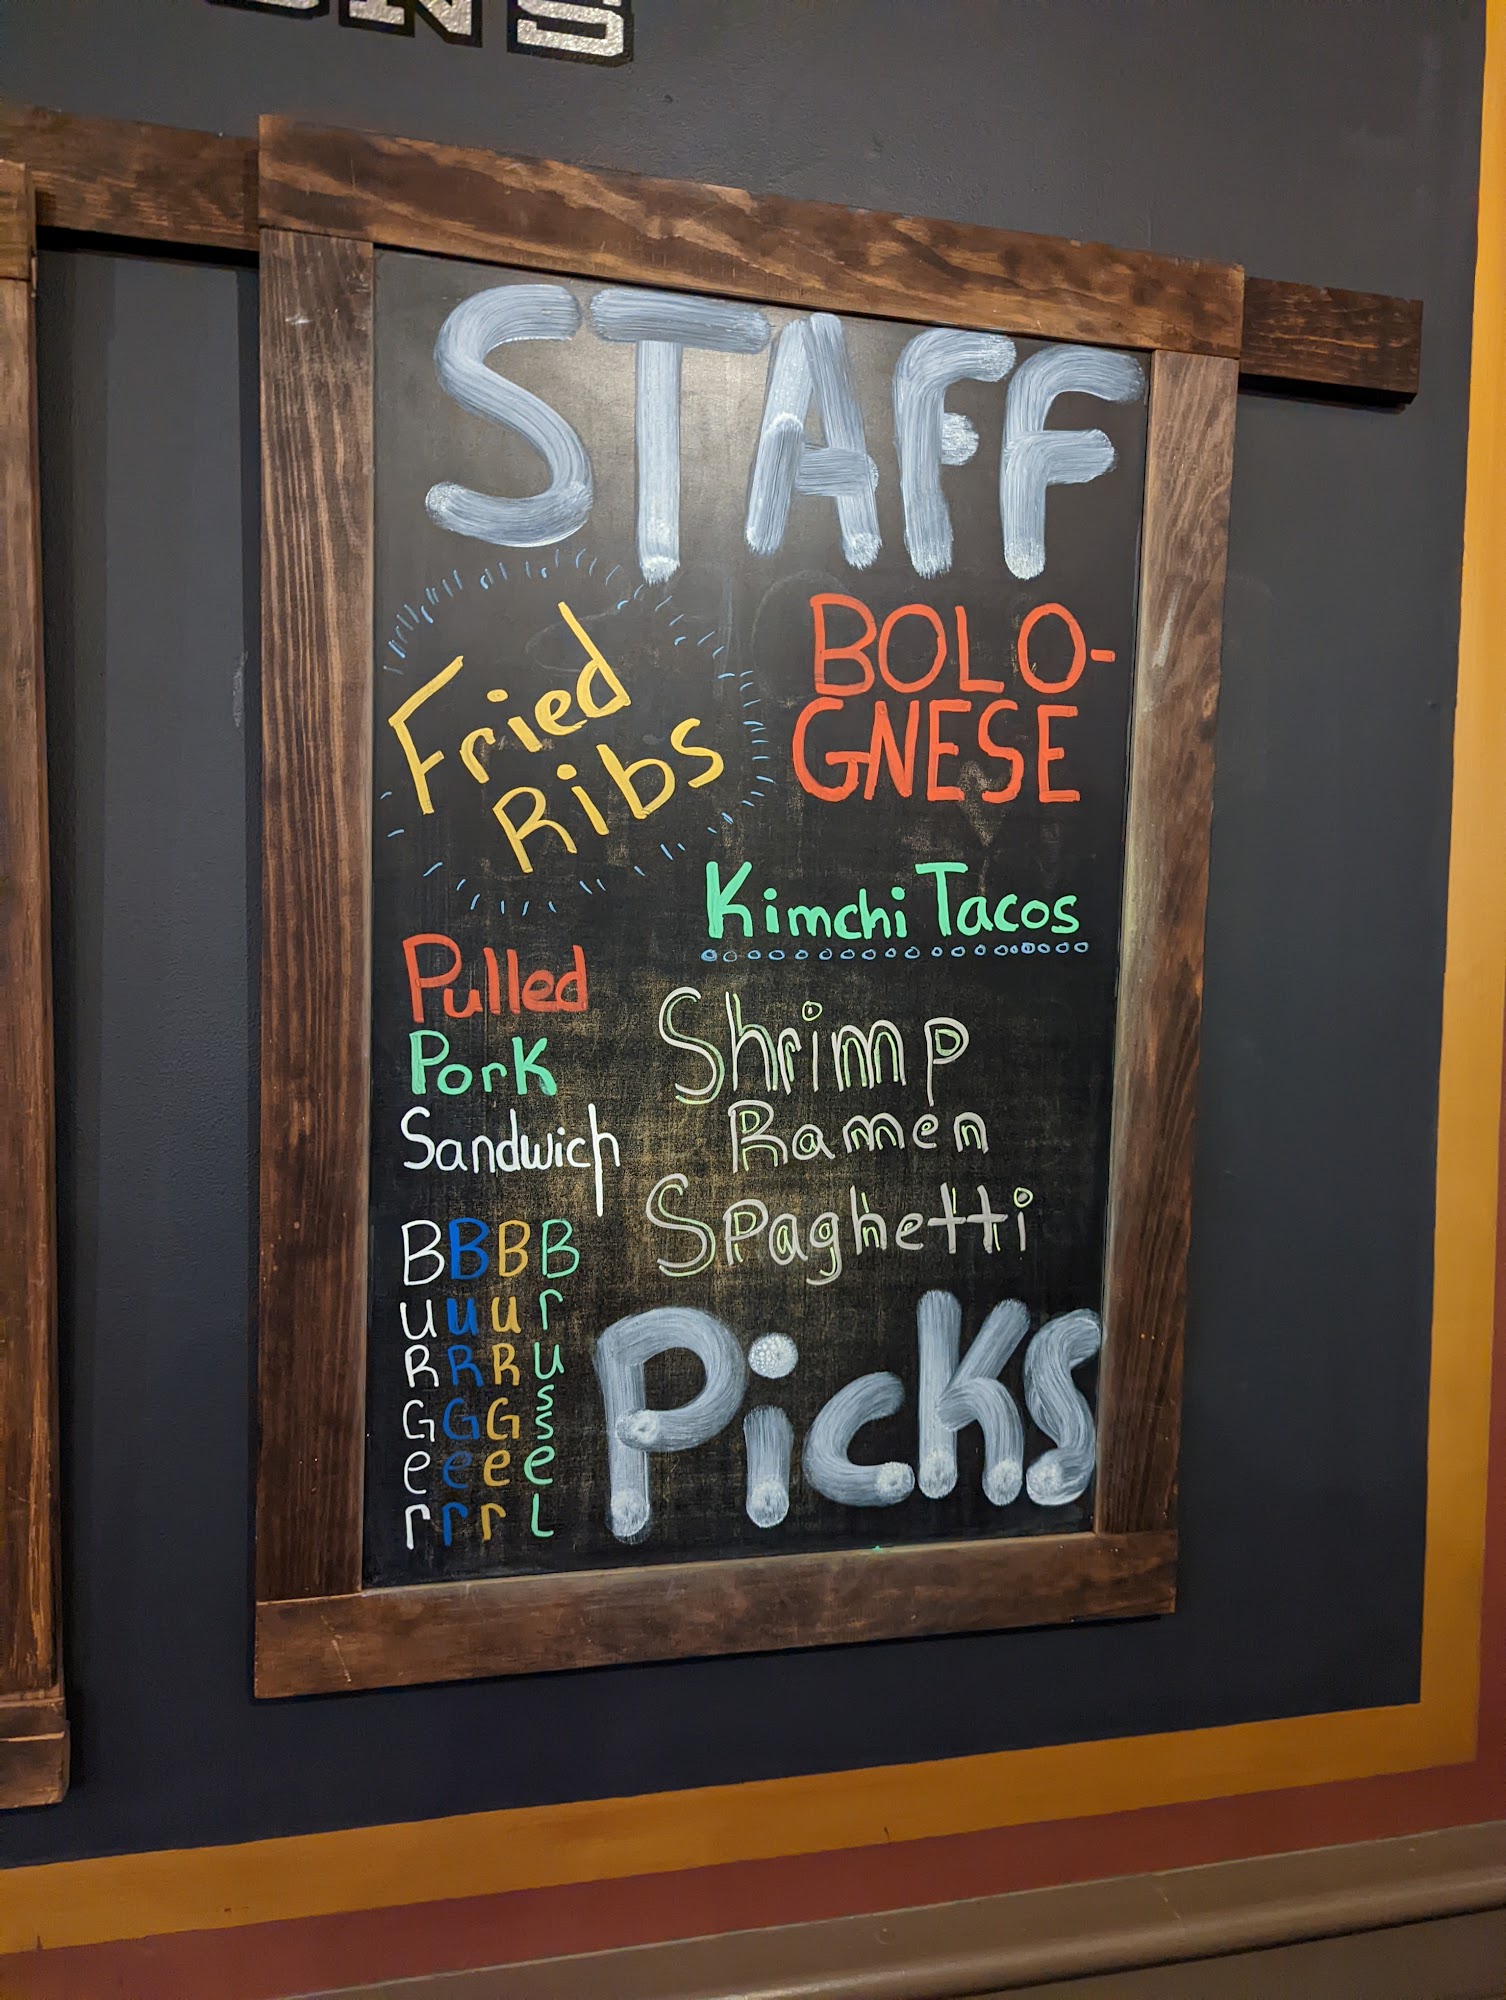 STAFF
Fried
Ribs
BOLO-
GNESE
Kimchi Tacos
Pulled
PorK
Sandwich
Shrimp
Ramen
Spaghetti
BuRGer
BuRGer
BuRGer
BrusseL
PicKS